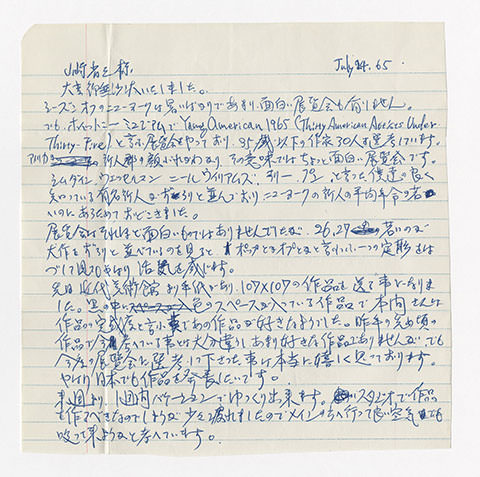 山崎省三様 July 24. 65
大変御無沙汰いたしました。
シーズンオフのニューヨークは暑いばかりであまり面白い展覧会も有りません。
でも、ホイットニーミュージアムで Young American 1965 (Thirty American Artists Under
Thirty-Five) と言ふ展覧会をやっており、35才以下の作家30人を選考しています。
アメリカの新人郡の顔ぶれがわかり、その意味ではちょっと面白い展覧会です。
ウェッセルマン ニール ウィリアムズ、ラリー 言った僕達の良く
知っている有名新人がずらりと並んでおりニューヨークの新人の平均年令の若
いのにあらためておどろきました。
展覧会はそれほど面白いものではありませんでしたが、26, 27 の若いのが
大作をずらりと並べているのを見ると ポップとかオプとか言ふ一つの定形を
活気を感じます。
先日近代美術館より手紙があり、107×107の作品を送る事になりま
した。黒の中に 色のスペースが入っている作品で本間さんは
作品の完成度と言ふ事であの作品が好きなようでした。昨年の
作品で今考えている事は大分違いあまり好きな作品でありませんが、でも
今度の展覧会に選考して下さった事は本当に嬉しく思っております。
やはり日本でも作品を発表したいです。
来週より、1週間バケーションでゆっくり出来ます。スタジオで作品
を作るべきなのでしょうが少々疲れましたのでメインの方へ行って良い空気でも
吸って来ようと考えています。